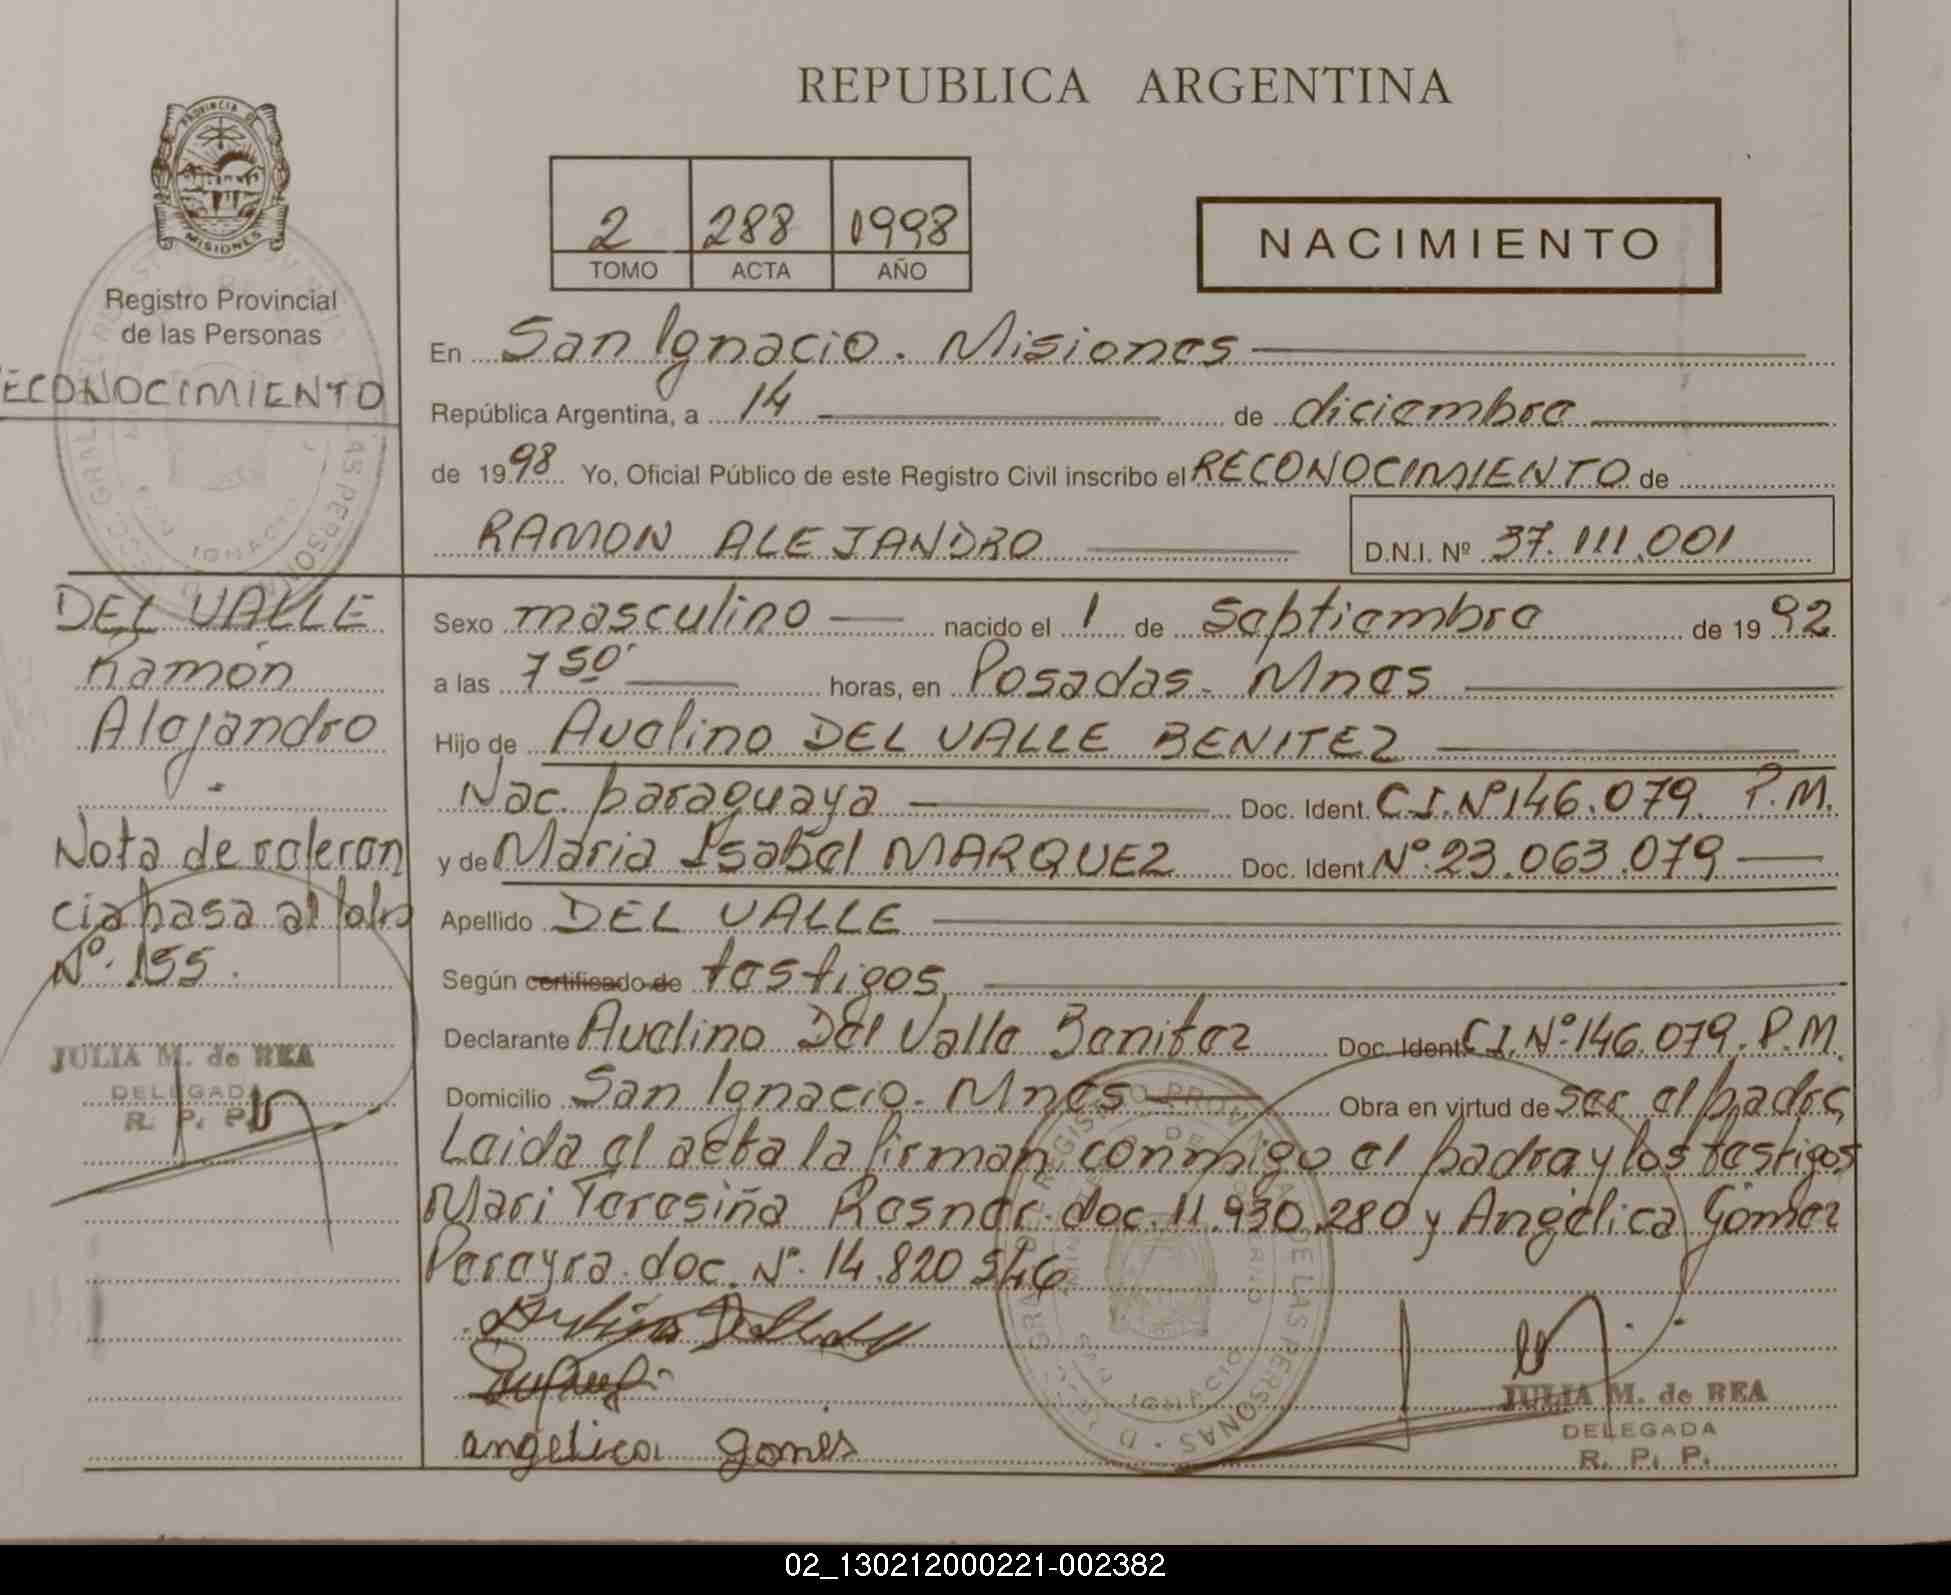 REPUBLICA ARGENTINA
PROVINCIA DE
MISIONES
Registro Provincial
de las Personas
ECONOCIMIENTO
2 288 1998
TOMO ACTA AÑO
NACIMIENTO
En San Ignacio. Misiones
República Argentina, a 14 de diciembre
de 1998 Yo, Oficial Público de este Registro Civil inscribo el RECONOCIMIENTO de
RAMON ALEJANDRO D.N.I. Nº 37.111.001
DEL VALLE
Ramón
Alejandro
Nota de referen
cia pasa al folio
Nº. 155.
JULIA M. de REA
DELEGADA
R. P. P.
Sexo masculino nacido el 1 de Septiembre de 1992
a las 7 50' horas, en Posadas. Mnes
Hijo de Avelino DEL VALLE BENITEZ
Nac. paraguaya Doc. Ident. C.I. Nº 146.079. P.M.
y de Maria Isabel MARQUEZ Doc. Ident. Nº. 23.063.079
Apellido DEL VALLE
Según certificado de testigos
Declarante Avelino Del Valle Benitez Doc. Ident. C.I. Nº. 146.079. P.M.
Domicilio San Ignacio. Mnes Obra en virtud de ser el padre
Leida el acta la firman conmigo el padre y los testigos
Mari Teresiña Resner. doc. 11.930.280 y Angélica Gómez
Pereyra. doc. Nº. 14.820 546
angelica gomes
JULIA M. de REA
DELEGADA
R. P. P.
02_130212000221-002382